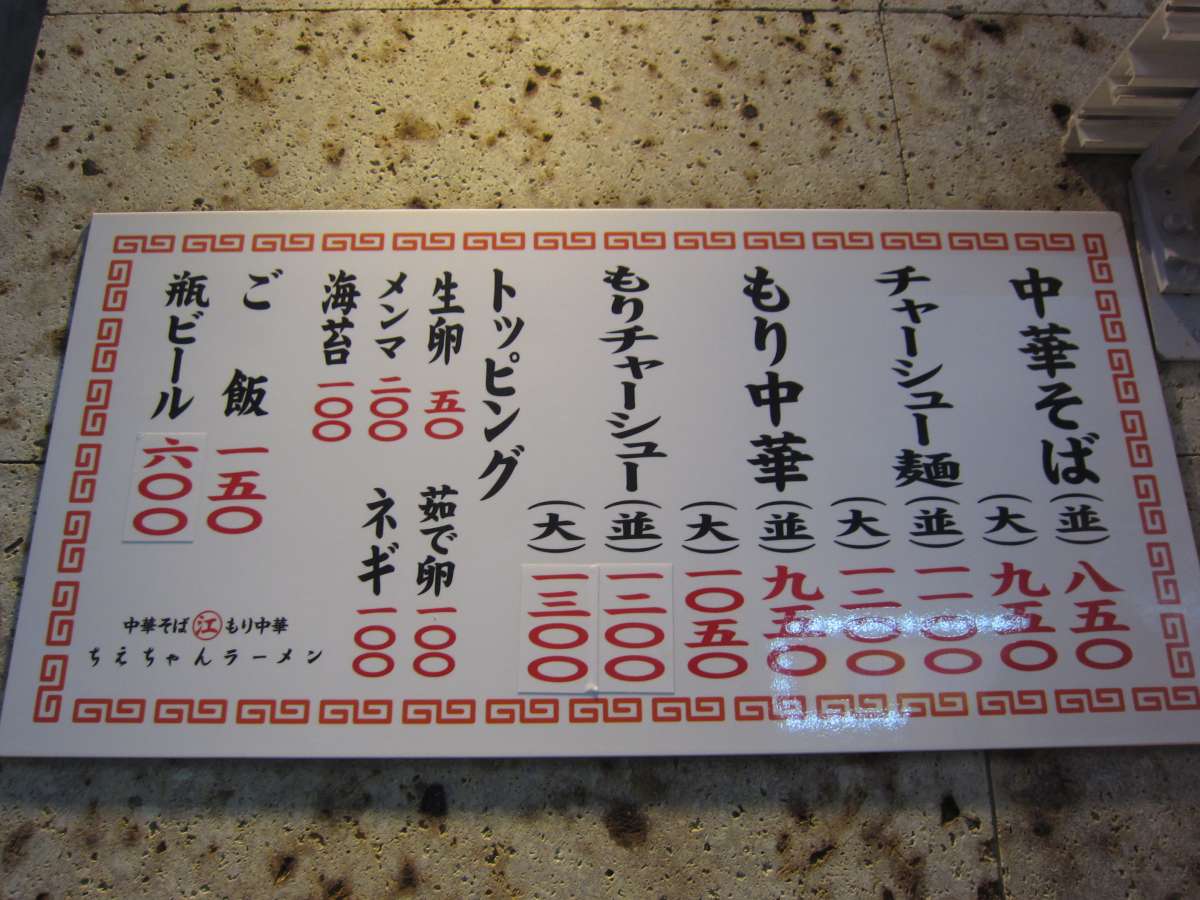 中華そば（並）八五〇
（大）九五〇
チャーシュー麺（並）一一〇〇
（大）一二〇〇
もり中華（並）九五〇
（大）一〇五〇
もりチャーシュー（並）一二〇〇
（大）一三〇〇
トッピング
生卵 五〇 茹で卵 一〇〇
メンマ 二〇〇 ネギ 一〇〇
海苔 一〇〇
ご飯 一五〇
瓶ビール 六〇〇
中華そば 江 もり中華
ちえちゃんラーメン